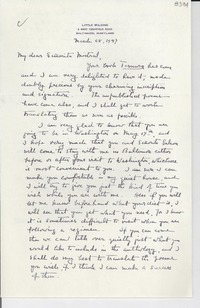 LITTLE BUILDING
BALTIMORE, MARYLAND
March 28, 1947
My dear Señorita Mistral,
Your book Ternura has come
and I am very delighted to have it, made
doubly precious by your charming inscription
and signature. The unpublished poems
have come also, and I shall get to work
translating them as soon as possible.
I am very glad to know that you are
going to be in Washington on May 17th, and
I hope very much that you and
will come to stay with me in Baltimore either
before or after your visit to Washington, whichever
is most convenient to you. I am sure I can
make you comfortable in my guest house and
I will try to give you just the kind of time you
wish while you are with me. If you will
let me know beforehand what your diet is, I
will see that you get what you need, for I know
it is sometimes difficult to visit when you are
following a regimen. If you can come
then we can talk over quietly just what you
would like to include in the anthology, and I
shall do my best to translate the poems
you wish if I think I can make a success
of them.